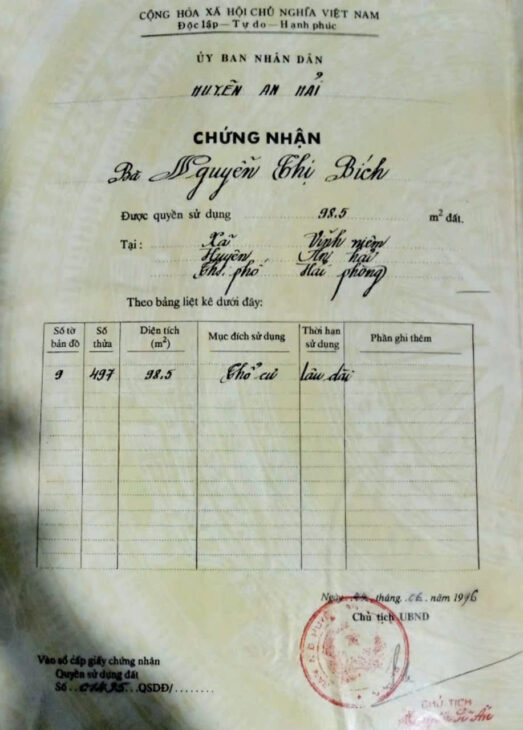 CỘNG HÒA XÃ HỘI CHỦ NGHĨA VIỆT NAM
Độc lập — Tự do — Hạnh phúc
ỦY BAN NHÂN DÂN
HUYỆN AN HẢI
CHỨNG NHẬN
Bà Nguyễn Thị Bích
Được quyền sử dụng 98.5 m² đất.
Tại: Xã Vĩnh niệm
Huyện An hải
Th. phố Hải phòng
Theo bảng liệt kê dưới đây:
Số tờ bản đồ Số thửa Diện tích (m²) Mục đích sử dụng Thời hạn sử dụng Phần ghi thêm
9 497 98.5 Thổ cư Lâu dài
Ngày tháng .06. năm 1996
Chủ tịch UBND
Vào sổ cấp giấy chứng nhận
Quyền sử dụng đất
Số ..01435...QSDĐ/........
CHỦ TỊCH